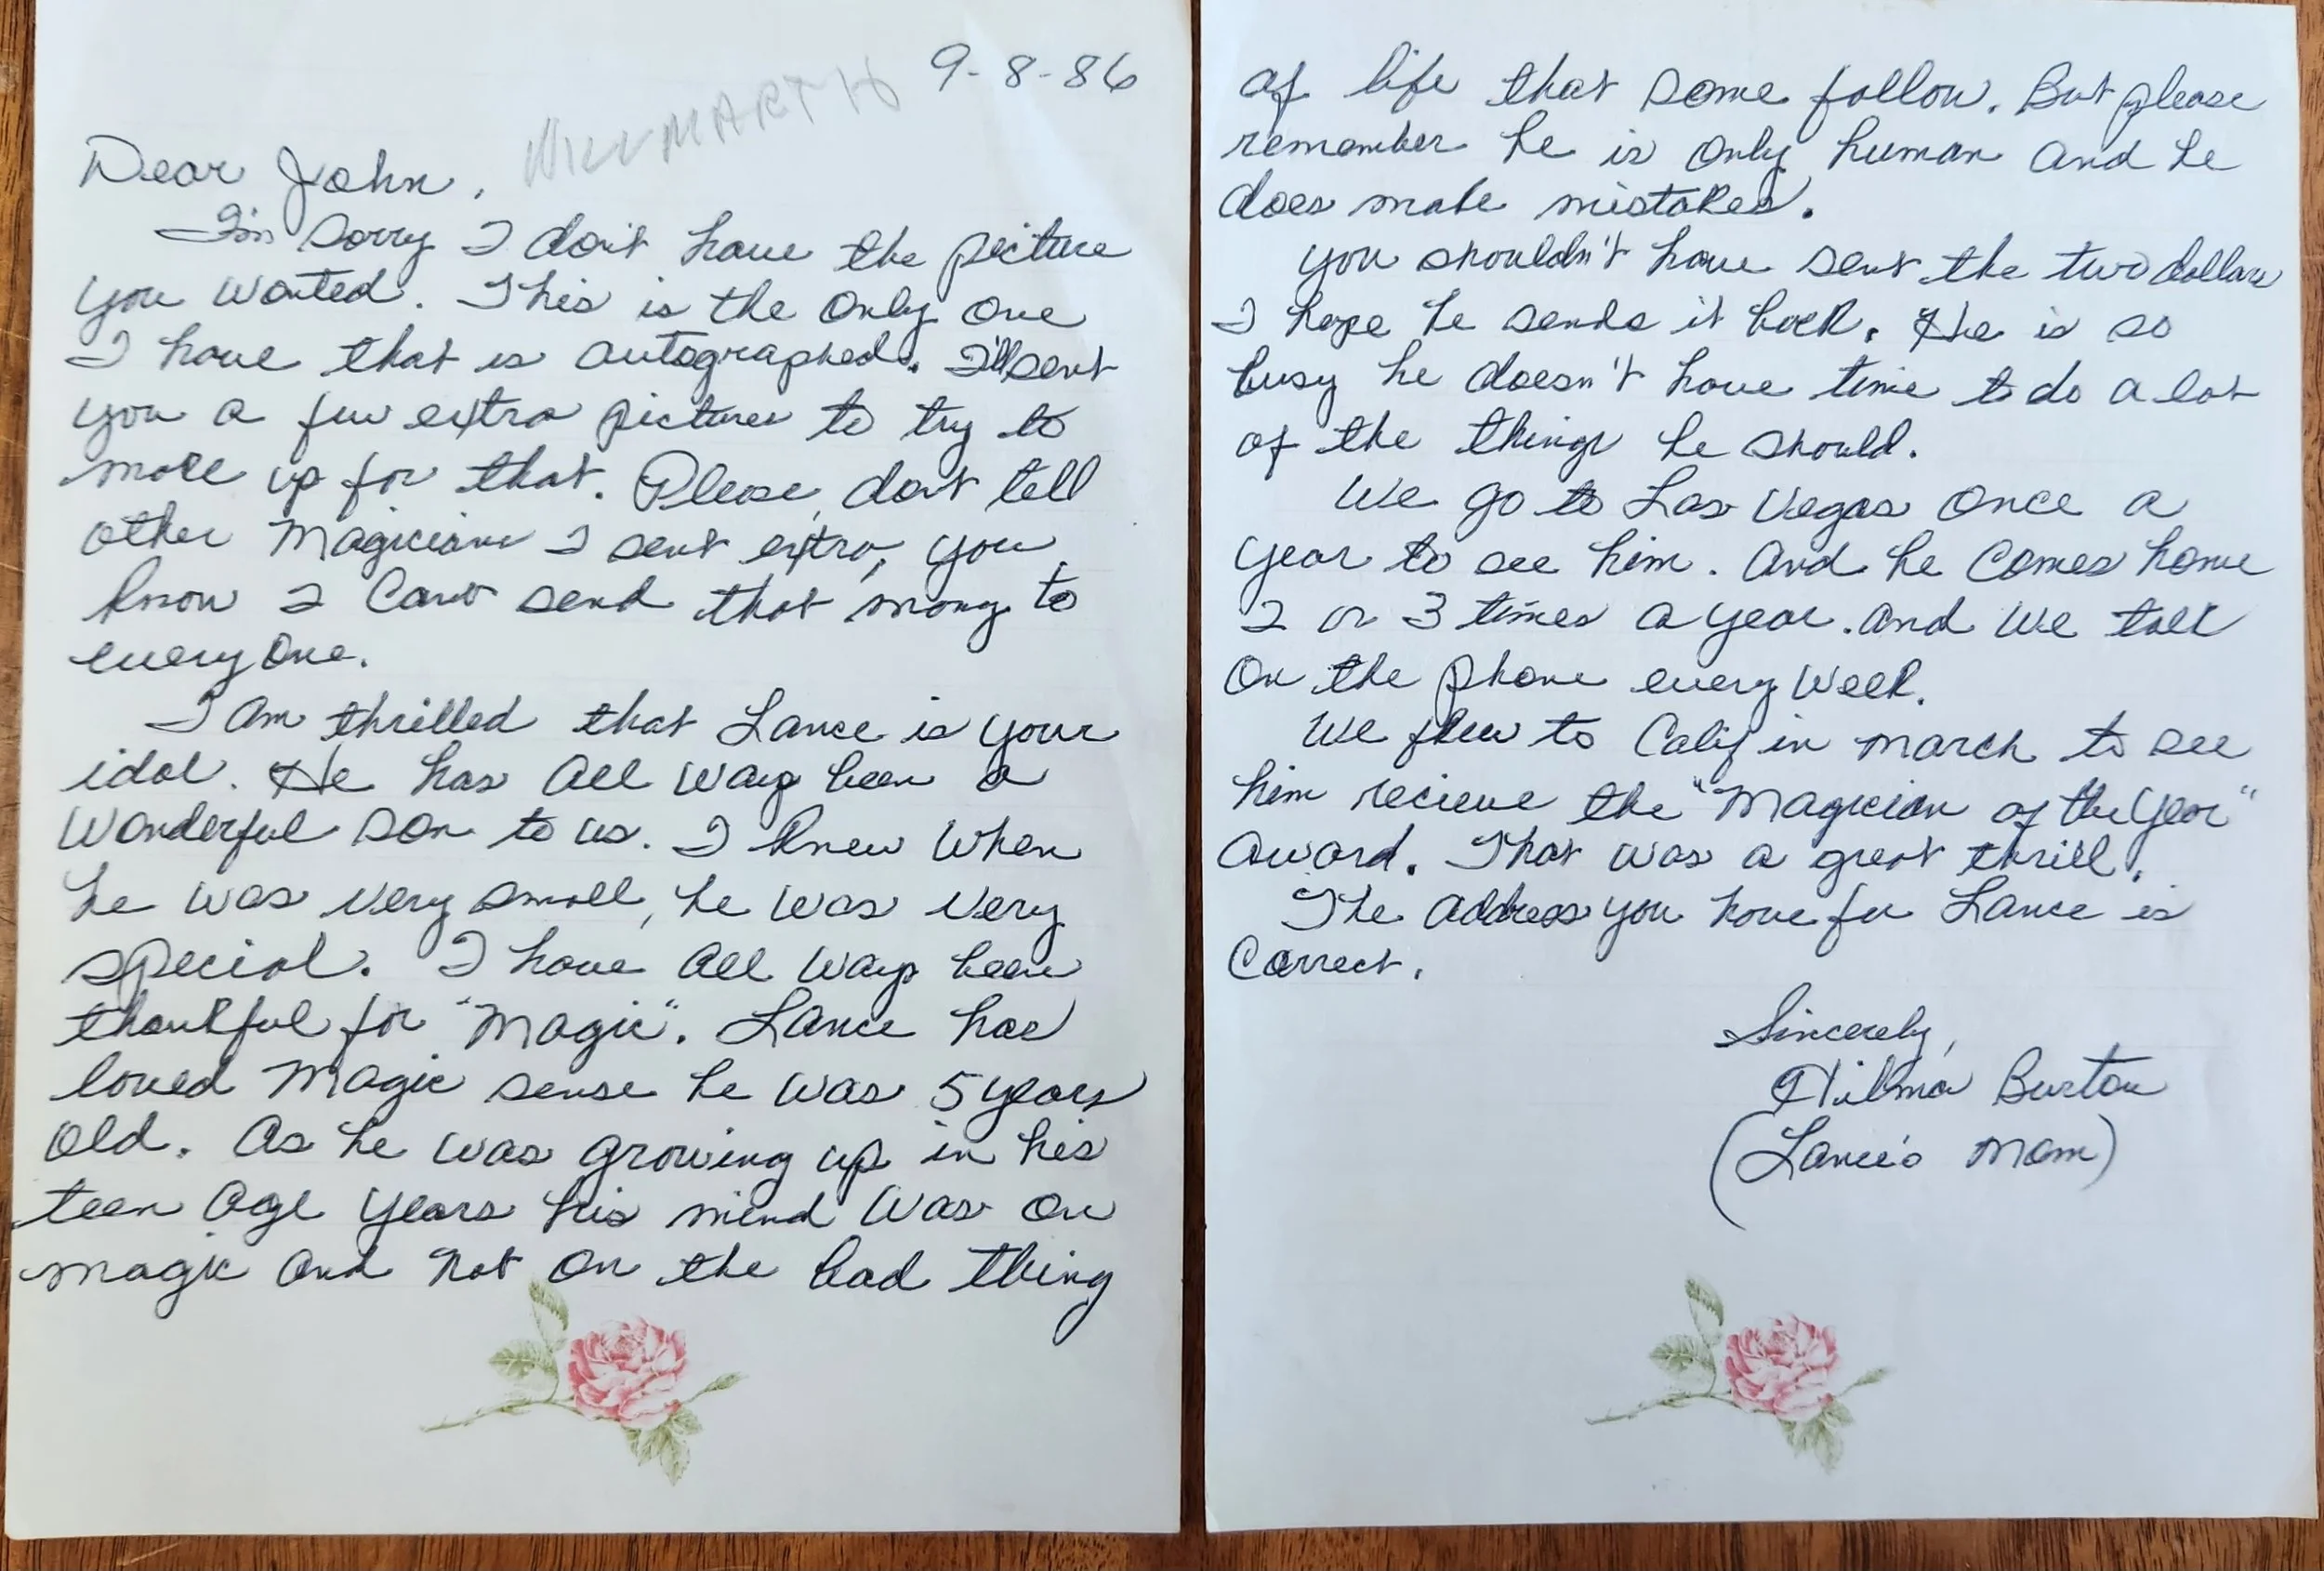 9-8-86
WILLMARTH
Dear John,
I'm sorry I don't have the picture
you wanted. This is the only one
I have that is autographed. I'll sent
you a few extra pictures to try to
make up for that. Please, don't tell
other Magicians I sent extra, you
know I Can't send that many to
everyone.
I am thrilled that Lance is your
idol. He has all ways been a
Wonderful son to us. I knew when
he was very small, he was very
special. I have all ways been
thankful for "Magic". Lance has
loved Magic sense he was 5 years
old. As he was growing up in his
teen age years his mind was on
magic and not on the bad thing
of life that some follow. But please
remember he is only human and he
does make mistakes.
You shouldn't have sent the two dollars
I hope he sends it back. He is so
busy he doesn't have time to do a lot
of the things he should.
We go to Las Vegas once a
year to see him. And he comes home
2 or 3 times a year. And we talk
on the phone every week.
We flew to Calif in march to see
him recieve the "Magician of the Year"
Award. That was a great thrill.
The address you have for Lance is
Correct.
Sincerely,
Hilma Burton
(Lance's Mom)